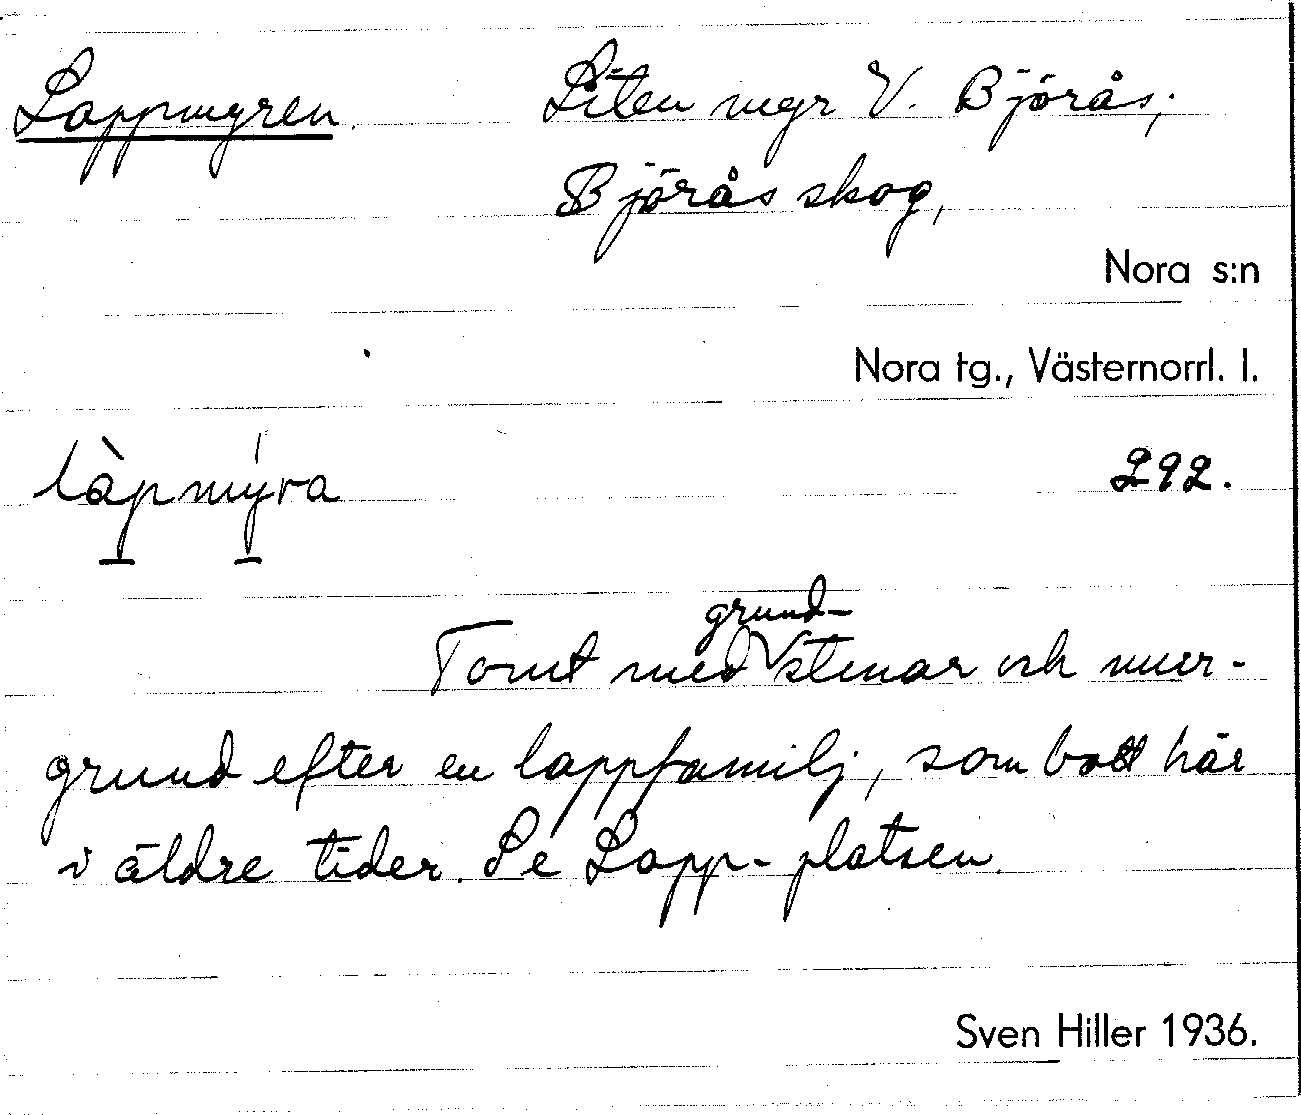 Lappmyren. Liten myr V. Björås,
Björås skog,
Nora s:n
Nora tg., Västernorrl. l.
làpmýra 292.
grund-
Tomt med stenar och mur-
grund efter en lappfamilj, som bott här
i äldre tider. Se Lapp-platsen.
Sven Hiller 1936.